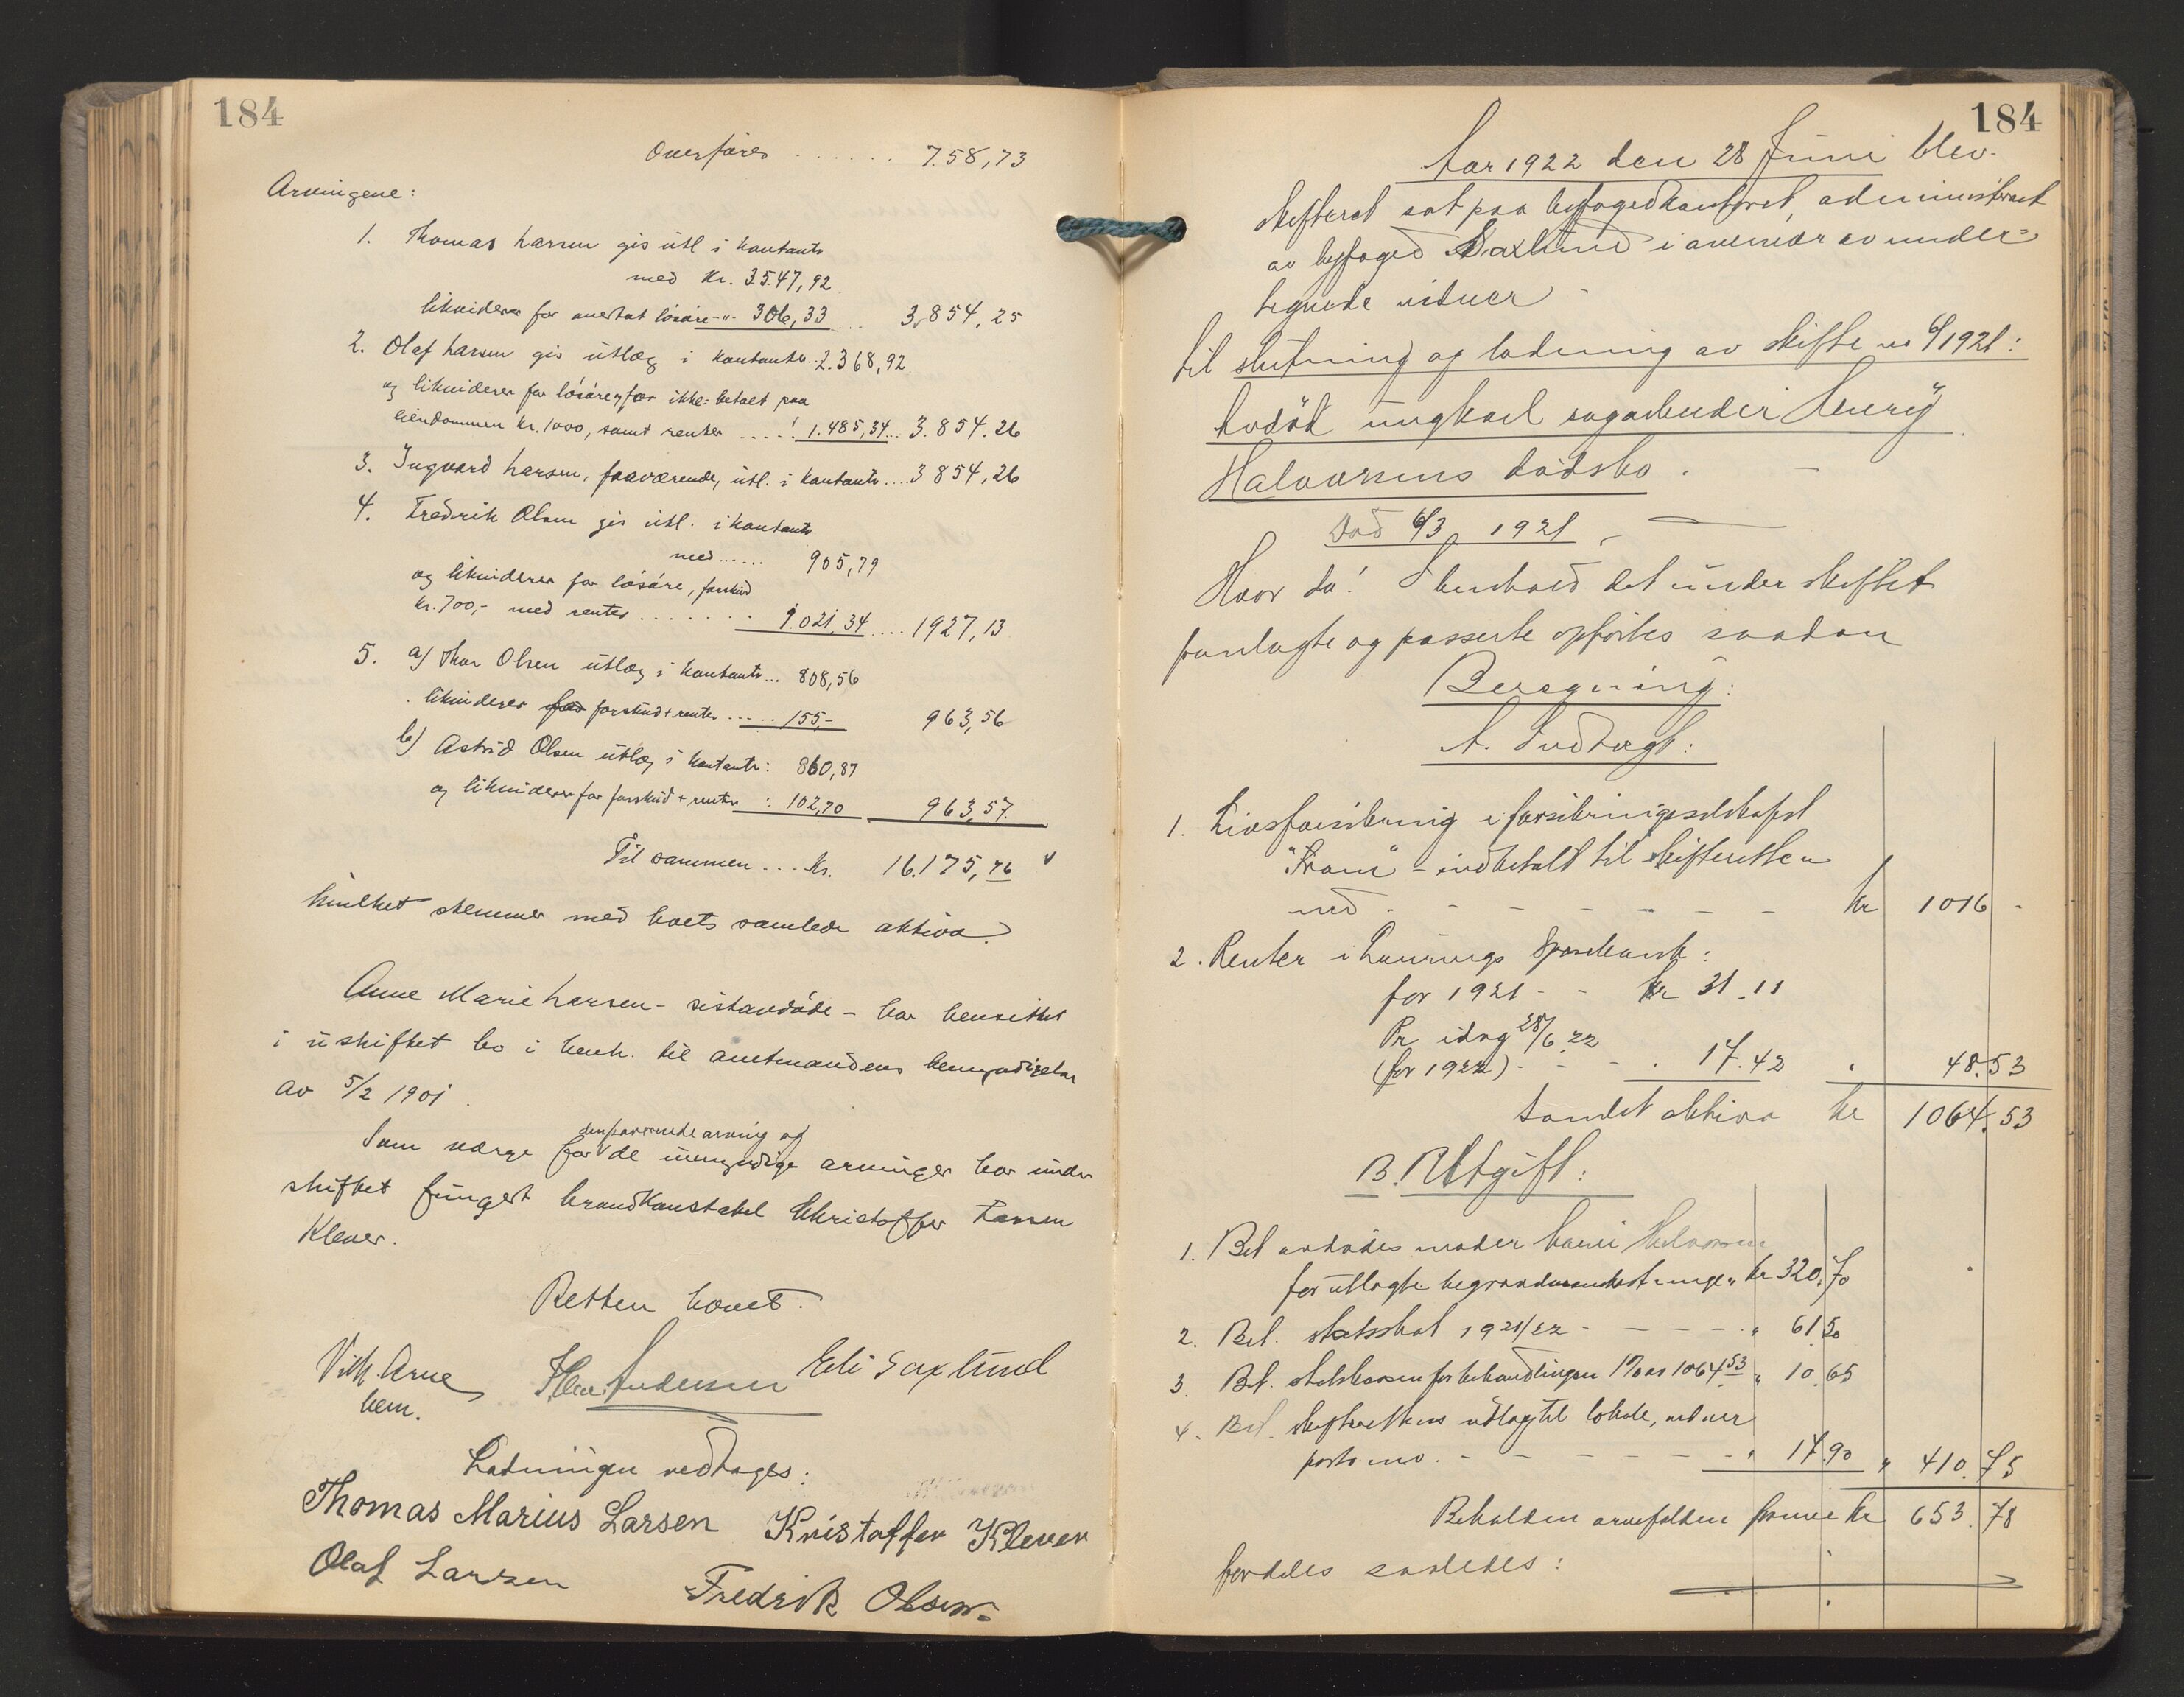 184
Overføres ...... 758,73
Arvingene:
1. Thomas Larsen gis utl i kontanter
med Kr. 3547,92
likviderer for overtat løsøre -"- 306,33 ... 3,854,25
2. Olaf Larsen gis utlæg i kontanter.. 2.368,92
og likviderer for løsøre, for ikke-betalt paa
eiendommen kr. 1000, samt renter ..... 1.485,34... 3.854.26
3. Ingvard Larsen, fraværende, utl. i kontanter... 3 854,26
4. Fredrik Olsen gis utl. i kontanter
med ...... 905,79
og likviderer for løsøre, forskud
kr. 700,- med renter ....... 1.021,34 .... 1927,13
5. a) Thor Olsen utlæg i kontanter... 808,56
likviderer for forskud + renter ..... 155,- 963,56
b) Astrid Olsen utlæg i kontanter: 860,87
og likviderer for forskud + renter : 102,70 963,57.
Til sammen ... Kr. 16.175,76
hvilket stemmer med boets samlede aktiva.
Anne Marie Larsen - sistavdøde - har hensittet
i uskiftet bo i henh. til amtmandens bemyndigelse
av 5/2 1901.
den fraværende arving og
Som værge for de umyndige arvinger har under
skiftet fungert brandkonstabel Christoffer Larsen
Klever.
Retten hævet.
Vilh. Arne Edv Saxlund
bem.
Ladningen vedtages:
Thomas Marius Larsen Kristoffer Klever
Olaf Larsen Fredrik Olsen
184
Aar 1922 den 28 Juni blev
skifteret sat paa byfogedkontoret, administreret
av byfoged Saxlund i overvær av under=
tegnede vidner
til slutning og ladning av skifte no 6/1921:
avdød ungkarl sagarbeider Henry
Halvorsens dødsbo.
Død 6/3 1921
Hvor da! I henhold det under skiftet
fremlagte og passerte opførtes saadan
Beregning:
A. Indtægt:
1. Livsforsikring i forsikringsselskapet
"Fram" - indbetalt til skifteretten
med - - - - - - - kr 1016 -
2. Renter i Sparebank:
for 1921 - - kr 31.11
Pr idag 28/6 22
(for 1922) - - - . 17.42 " 48.53
Samlet aktiva kr 1064.53
B. Utgift:
1. Bet avdødes moder Halvorsen
for utlagte begravelsesomkostninger kr 320.70
2. Bet. statsskat 1921/22 - - - - - " 61 50
3. Bet. statskassen for behandlingen 1% av 1064.53 " 10.65
4. Bet. skifterettens utlæg til lokale, vidner
porto mv. - - - - - - - " 17.90 " 410.75
Beholden arvefalden formue kr 653.78
fordeles saaledes: